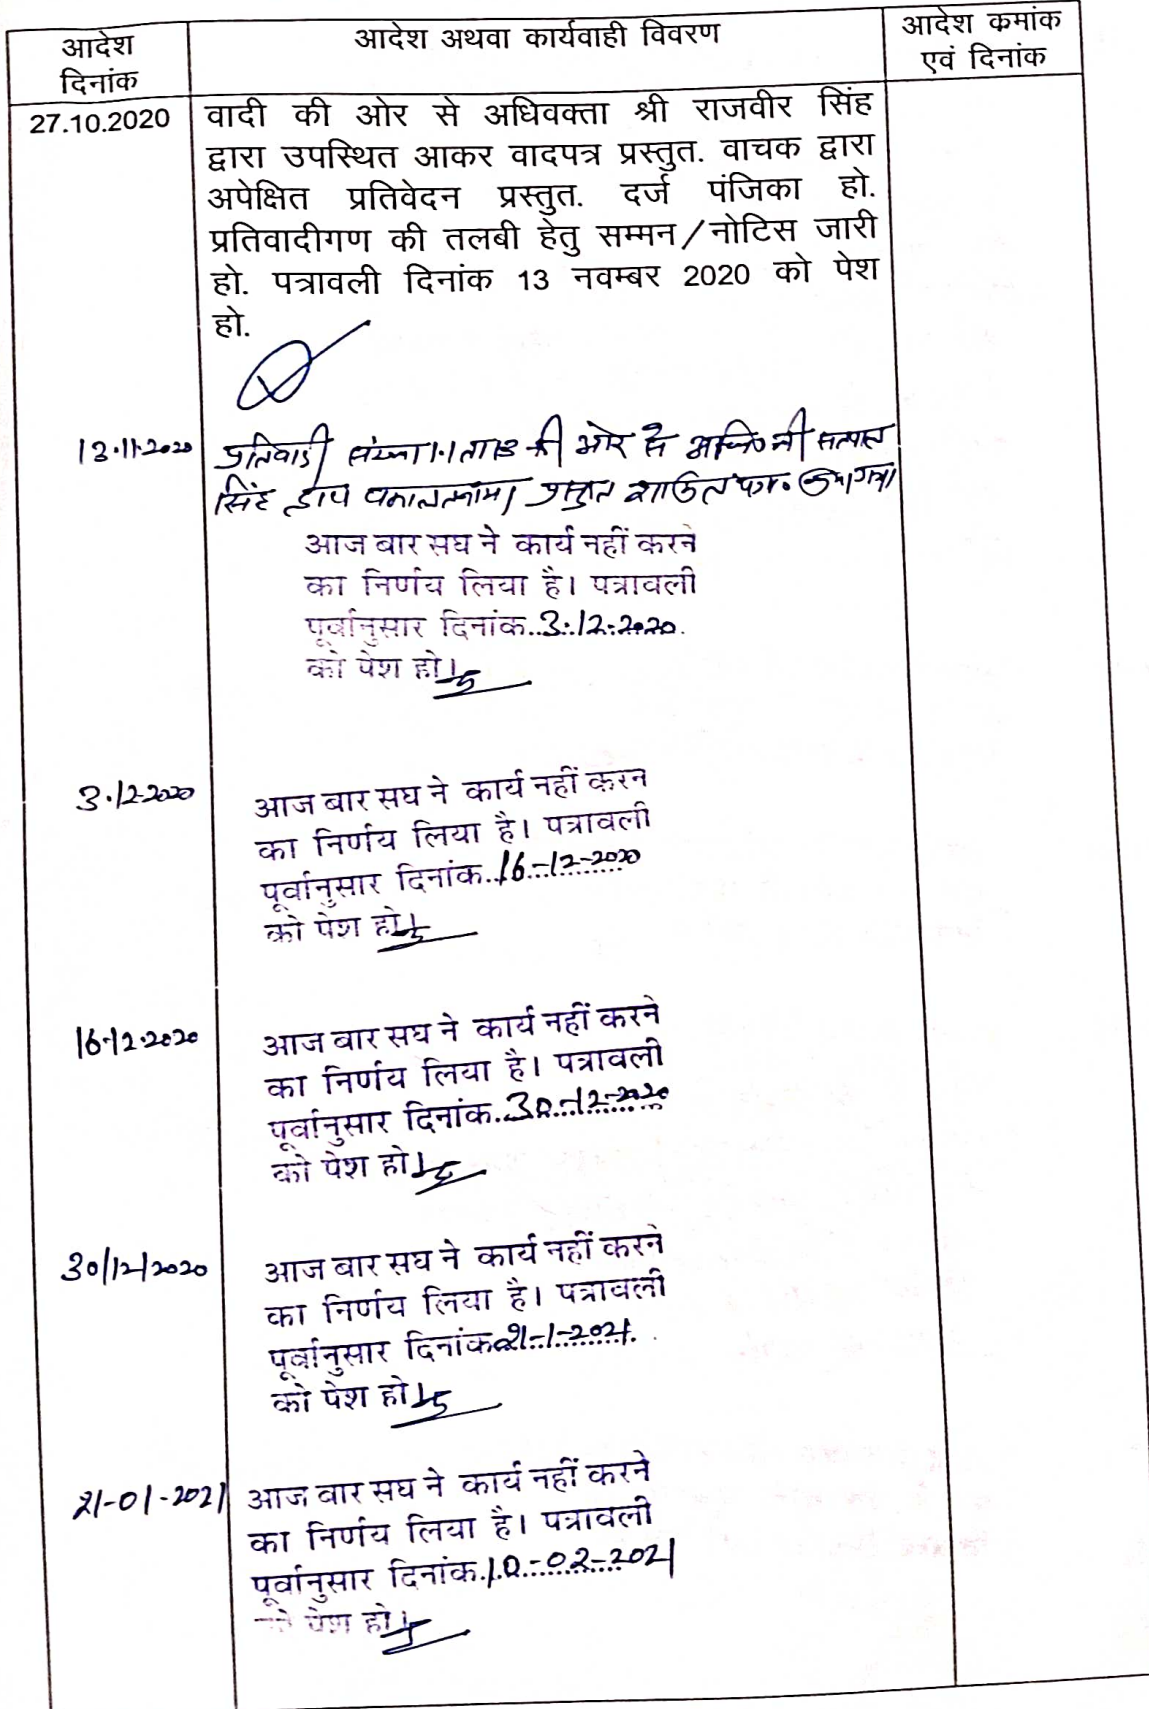 आदेश दिनांक
आदेश अथवा कार्यवाही विवरण
आदेश कमांक
एवं दिनांक
27.10.2020
वादी की ओर से अधिवक्ता श्री राजवीर सिंह
द्वारा उपस्थित आकर वादपत्र प्रस्तुत. वाचक द्वारा
अपेक्षित प्रतिवेदन प्रस्तुत. दर्ज पंजिका हो.
प्रतिवादीगण की तलबी हेतु सम्मन/नोटिस जारी
हो. पत्रावली दिनांक 13 नवम्बर 2020 को पेश
हो.
13.11.2020
प्रतिवादी संख्या की ओर से
सिंह द्वारा वकालतनामा प्रस्तुत
आज बार सघ ने कार्य नहीं करने
का निर्णय लिया है। पत्रावली
पूर्वानुसार दिनांक..3.12.2020.
को पेश हो।
3.12.2020
आज बार सघ ने कार्य नहीं करन
का निर्णय लिया है। पत्रावली
पूर्वानुसार दिनांक..16-12-2020
को पेश हो।
16.12.2020
आज बार सघ ने कार्य नहीं करने
का निर्णय लिया है। पत्रावली
पूर्वानुसार दिनांक..30-12-2020
को पेश हो।
30/12/2020
आज बार सघ ने कार्य नहीं करने
का निर्णय लिया है। पत्रावली
पूर्वानुसार दिनांक 21-1-2021.
को पेश हो।
21-01-2021
आज बार सघ ने कार्य नहीं करने
का निर्णय लिया है। पत्रावली
पूर्वानुसार दिनांक..10-02-2021
को पेश हो।